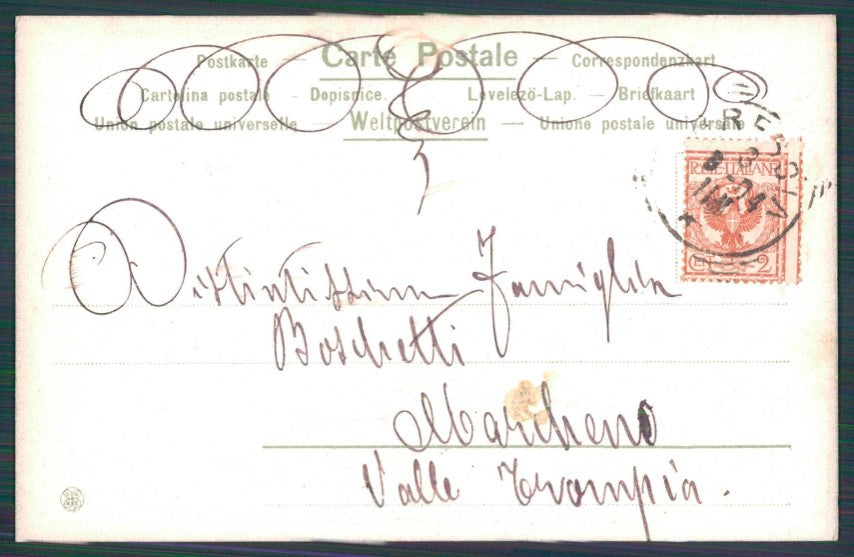 Postkarte — Carte Postale — Correspondenzkart
Cartolina postale - Dopisnice. Levelező-Lap. - Briefkaart
Union postale universelle — Weltpostverein — Unione postale universale
BRESCIA
POSTE ITALIANE
CENT. 2
Distintissima Famiglia
Boschetti
Marcheno
Valle Trompia.